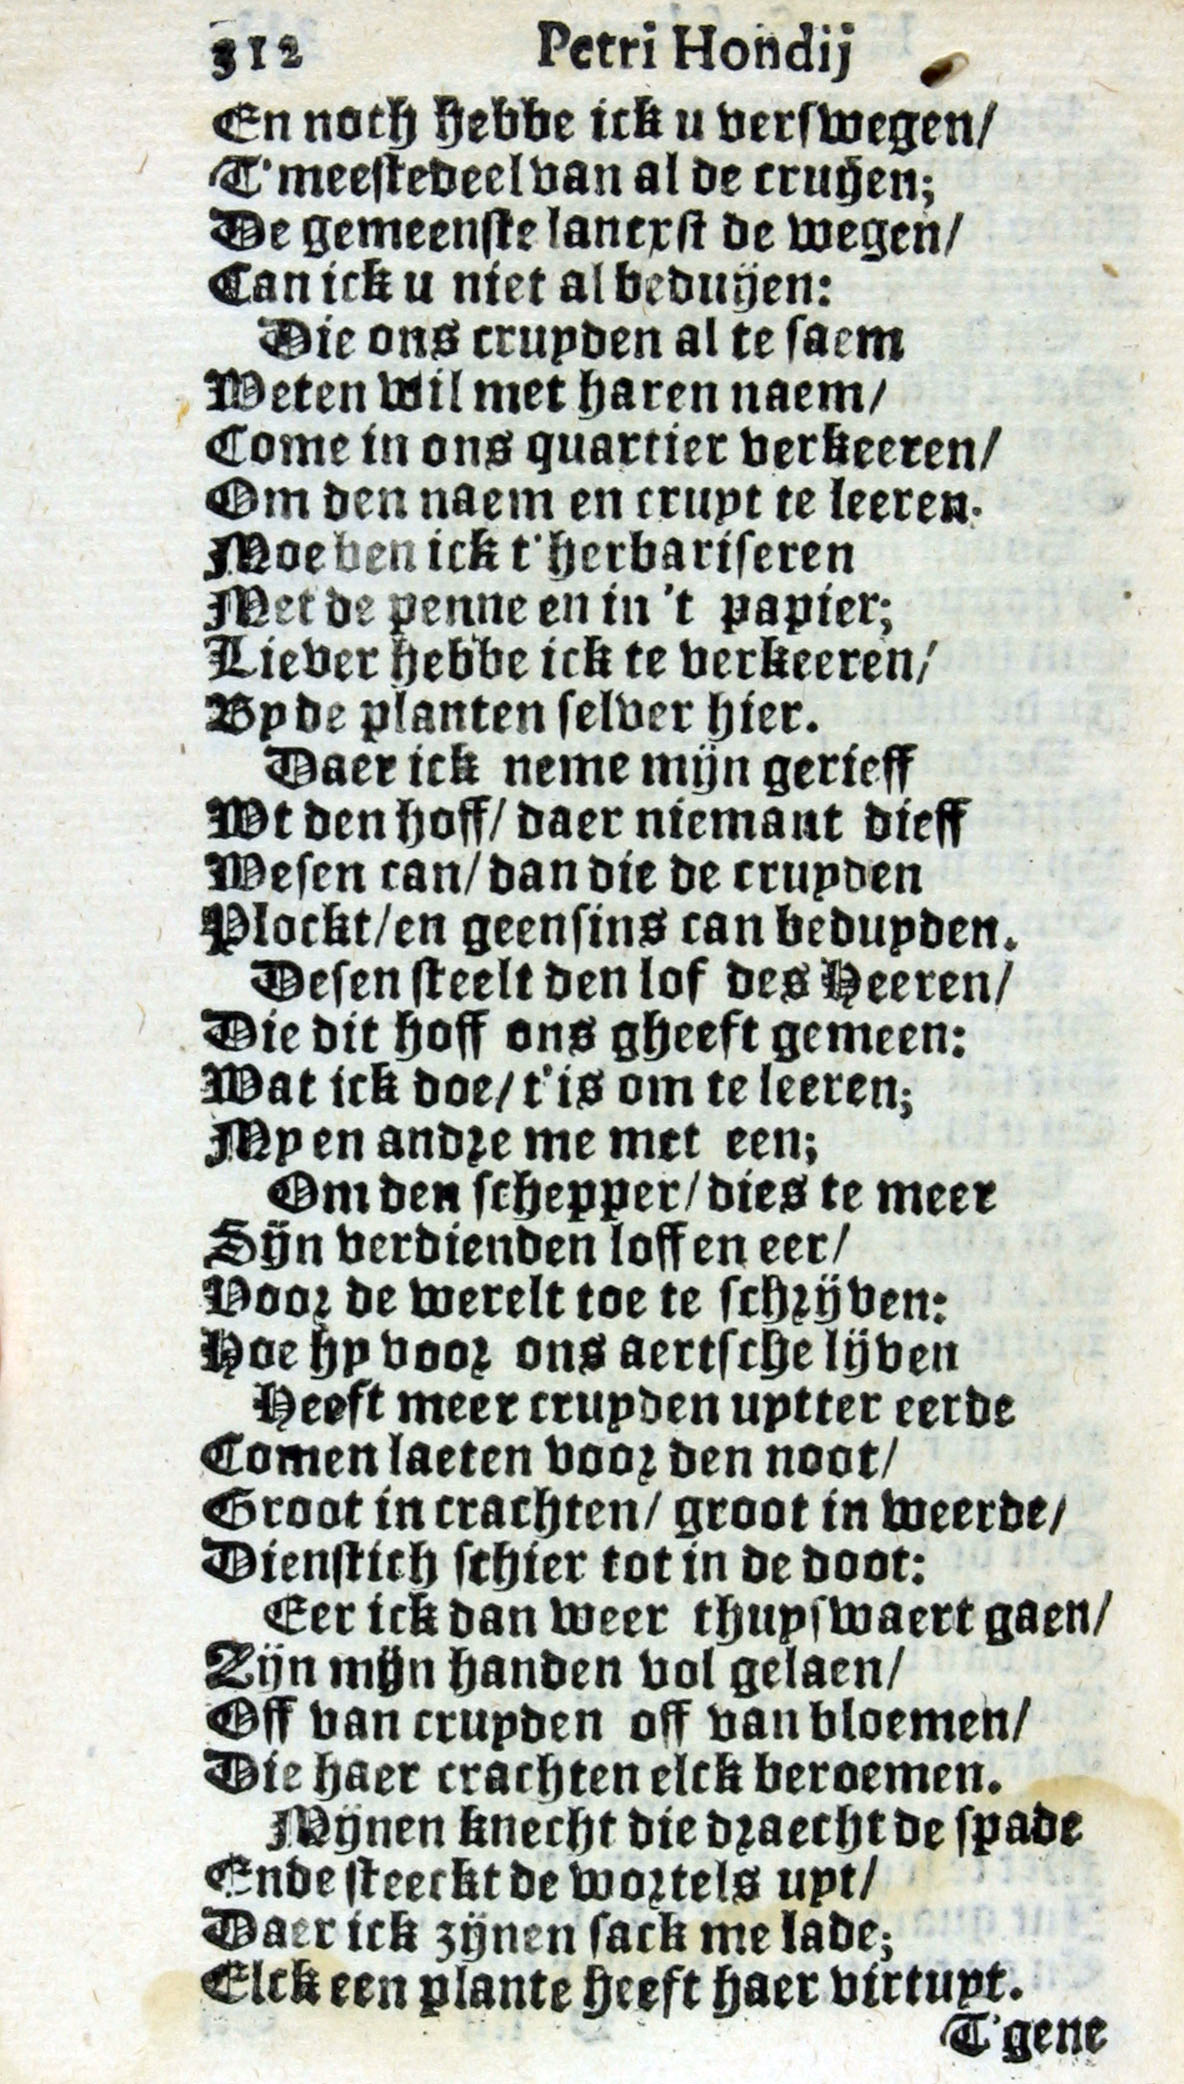 312 Petri Hondij
En noch hebbe ick u verswegen/
T'meestedeel van al de cruijen;
De gemeenste lancxst de wegen/
Can ick u niet al beduijen:
Die ons cruyden al te saem
Weten wil met haren naem/
Come in ons quartier verkeeren/
Om den naem en cruyt te leeren.
Moe ben ick t'herbariseren
Met de penne en in 't papier;
Liever hebbe ick te verkeeren/
By de planten selver hier.
Daer ick neme mijn gerieff
Wt den hoff/ daer niemant dieff
Wesen can/ dan die de cruyden
Plockt/ en geensins can beduyden.
Desen steelt den lof des Heeren/
Die dit hoff ons gheeft gemeen:
Wat ick doe/ t'is om te leeren;
My en andre me met een;
Om den schepper/ dies te meer
Sijn verdienden loff en eer/
Voor de werelt toe te schrijven:
Hoe hy voor ons aertsche lijven
Heeft meer cruyden uytter eerde
Comen laeten voor den noot/
Groot in crachten/ groot in weerde/
Dienstich schier tot in de doot:
Eer ick dan weer thuyswaert gaen/
Zijn mijn handen vol gelaen/
Off van cruyden off van bloemen/
Die haer crachten elck beroemen.
Mijnen knecht die draecht de spade
Ende steeckt de wortels uyt/
Daer ick zijnen sack me lade;
Elck een plante heeft haer virtuyt.
T'gene